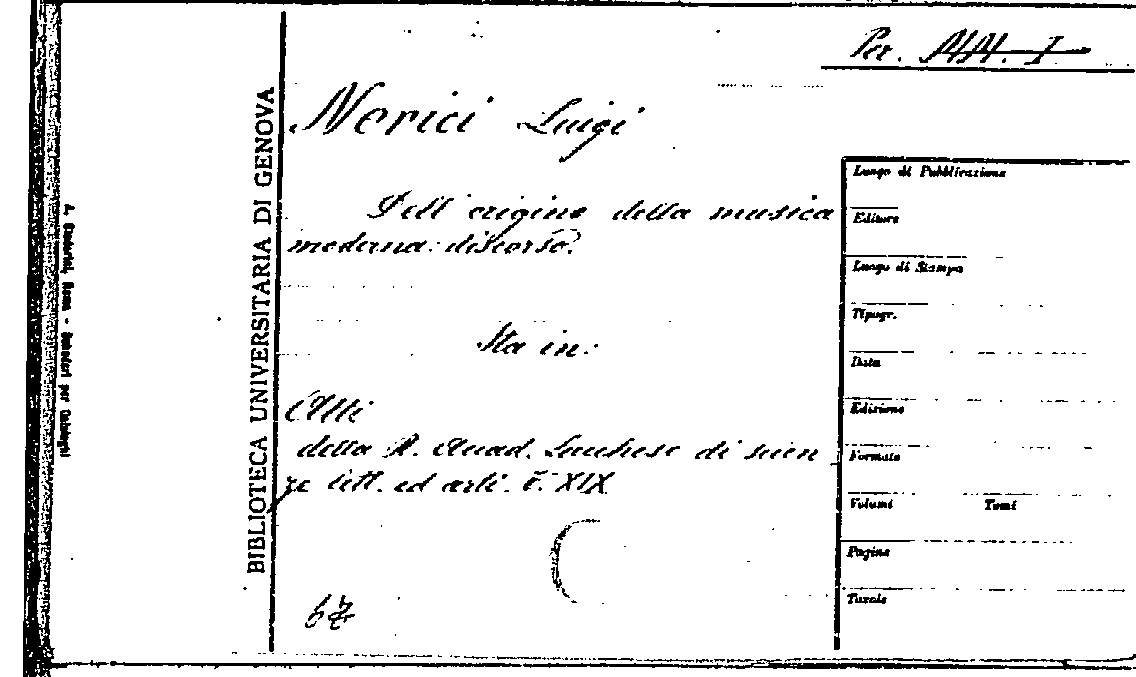 Per. NN. I
Nerici Luigi
Dell'origine della musica
moderna: discorso.
Sta in:
Atti
della R. Accad. Lucchese di scien
ze lett. ed arti. t. XIX
BIBLIOTECA UNIVERSITARIA DI GENOVA
Luogo di Pubblicazione
Editore
Luogo di Stampa
Tipogr.
Data
Edizione
Formato
Volumi Tomi
Pagine
Tavole